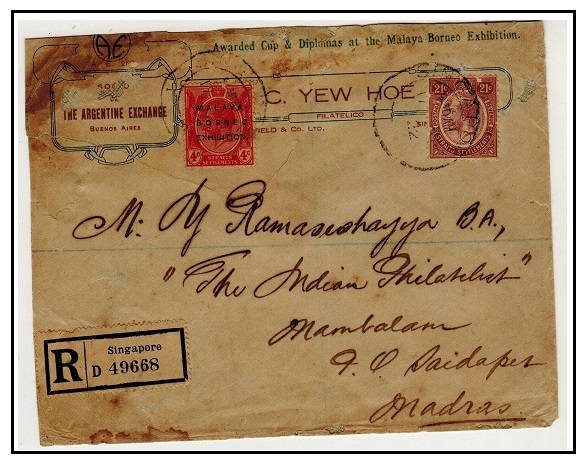 Awarded Cup & Diplomas at the Malaya-Borneo Exhibition.
A E
SOCIO
THE ARGENTINE EXCHANGE
BUENOS AIRES
C. YEW HOE
FILATELICO
FIELD & Co. LTD.
SIN
MALAYA
BORNEO
EXHIBITION.
4c 4c
STRAITS
SETTLEMENTS
21c 21c
STRAITS SETTLEMENTS
M. Y Ramaseshayya B.A.,
"The Indian Philatelist"
Mambalam
P.O Saidapet
Madras.
R
Singapore
D 49668